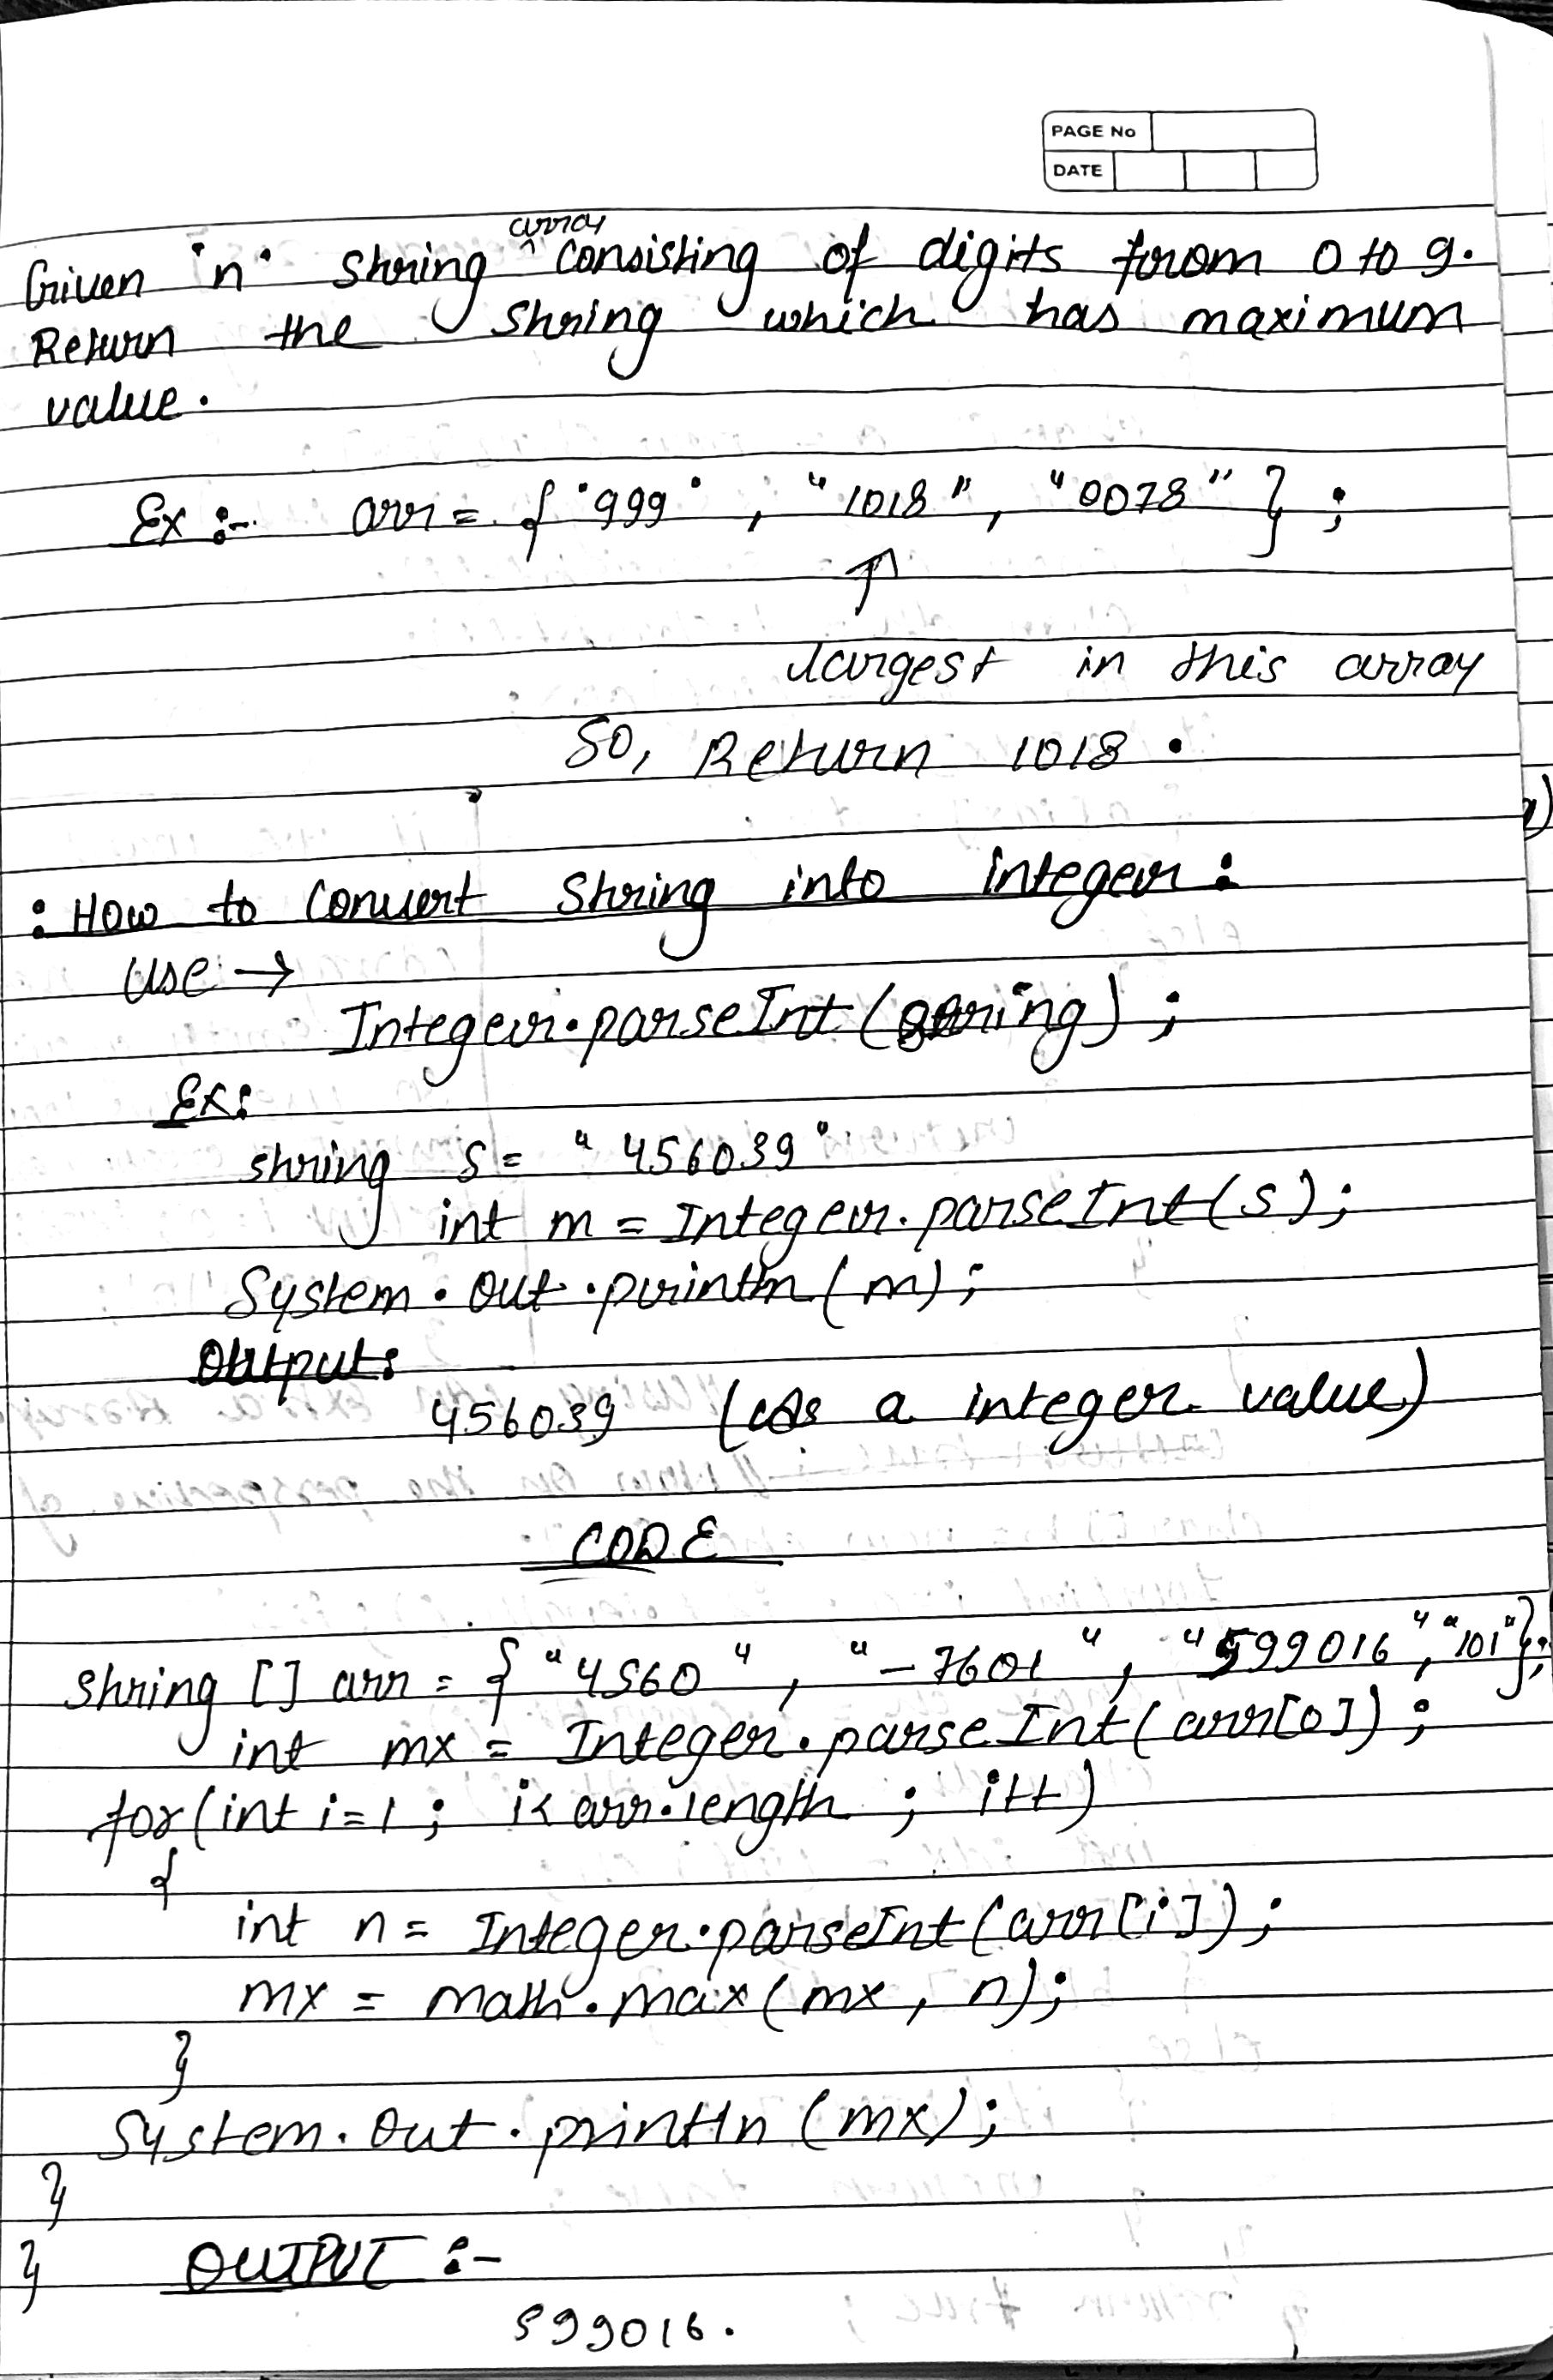 PAGE No
DATE
Given "n" string array consisting of digits from 0 to 9.
Return the string which has maximum
value.
Ex :- arr = { "999", "1018", "0078" } ;
↑
largest in this array
So, Return 1018 .
: How to convert string into integer :
Use →
Integer.parseInt (string) ;
Ex:
string s = "456039"
int m = Integer.parseInt(s);
System.out.println(m);
Output:
456039 (as a integer value)
CODE
string [] arr = { "4560", "-7601", "599016", "101" };
int mx = Integer.parseInt(arr[0]) ;
for(int i=1 ; i< arr.length ; i++)
{
int n = Integer.parseInt(arr[i]);
mx = math.max(mx, n);
}
System.out.println(mx);
}
} OUTPUT :-
599016.